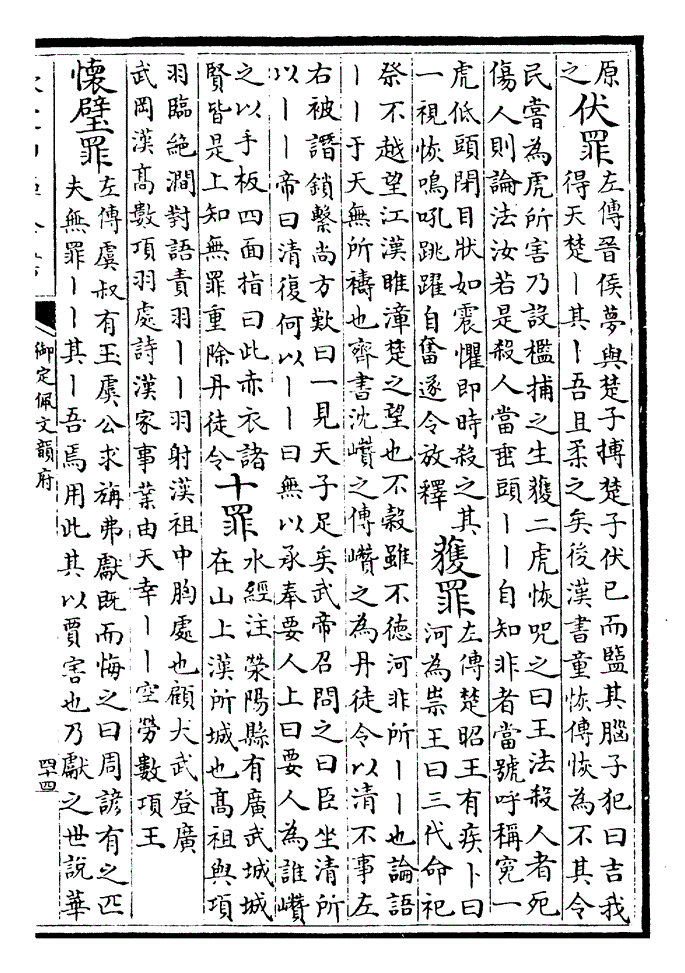 原
之
伏罪
左傳晉侯夢與楚子搏楚子伏已而盬其腦子犯曰吉我
得天楚丨其丨吾且柔之矣後漢書童恢傳恢為不其令
民嘗為虎所害乃設檻捕之生獲二虎恢咒之曰王法殺人者死
傷人則論法汝若是殺人當垂頭丨丨自知非者當號呼稱寃一
虎低頭閉目狀如震懼即時殺之其
一視恢鳴吼跳躍自奮遂令放釋
獲罪
左傳楚昭王有疾卜曰
河為祟王曰三代命祀
祭不越望江漢睢漳楚之望也不穀雖不德河非所丨丨也論語
丨丨于天無所禱也齊書沈巑之傳巑之為丹徒令以清不事左
右被譖鎖繫尚方歎曰一見天子足矣武帝召問之曰臣坐清所
以丨丨帝曰清復何以丨丨曰無以承奉要人上曰要人為誰巑
之以手板四面指曰此赤衣諸
賢皆是上知無罪重除丹徒令
十罪
水經注滎陽縣有廣武城城
在山上漢所城也髙祖與項
羽臨絶澗對語責羽丨丨羽射漢祖中胸處也顧大武登廣
武岡漢髙數項羽處詩漢家事業由天幸丨丨空勞數項王
懐璧罪
左傳虞叔有玉虞公求旃弗獻既而悔之曰周諺有之匹
夫無罪丨丨其丨吾焉用此其以賈害也乃獻之世說華
御定佩文韻府
四十四